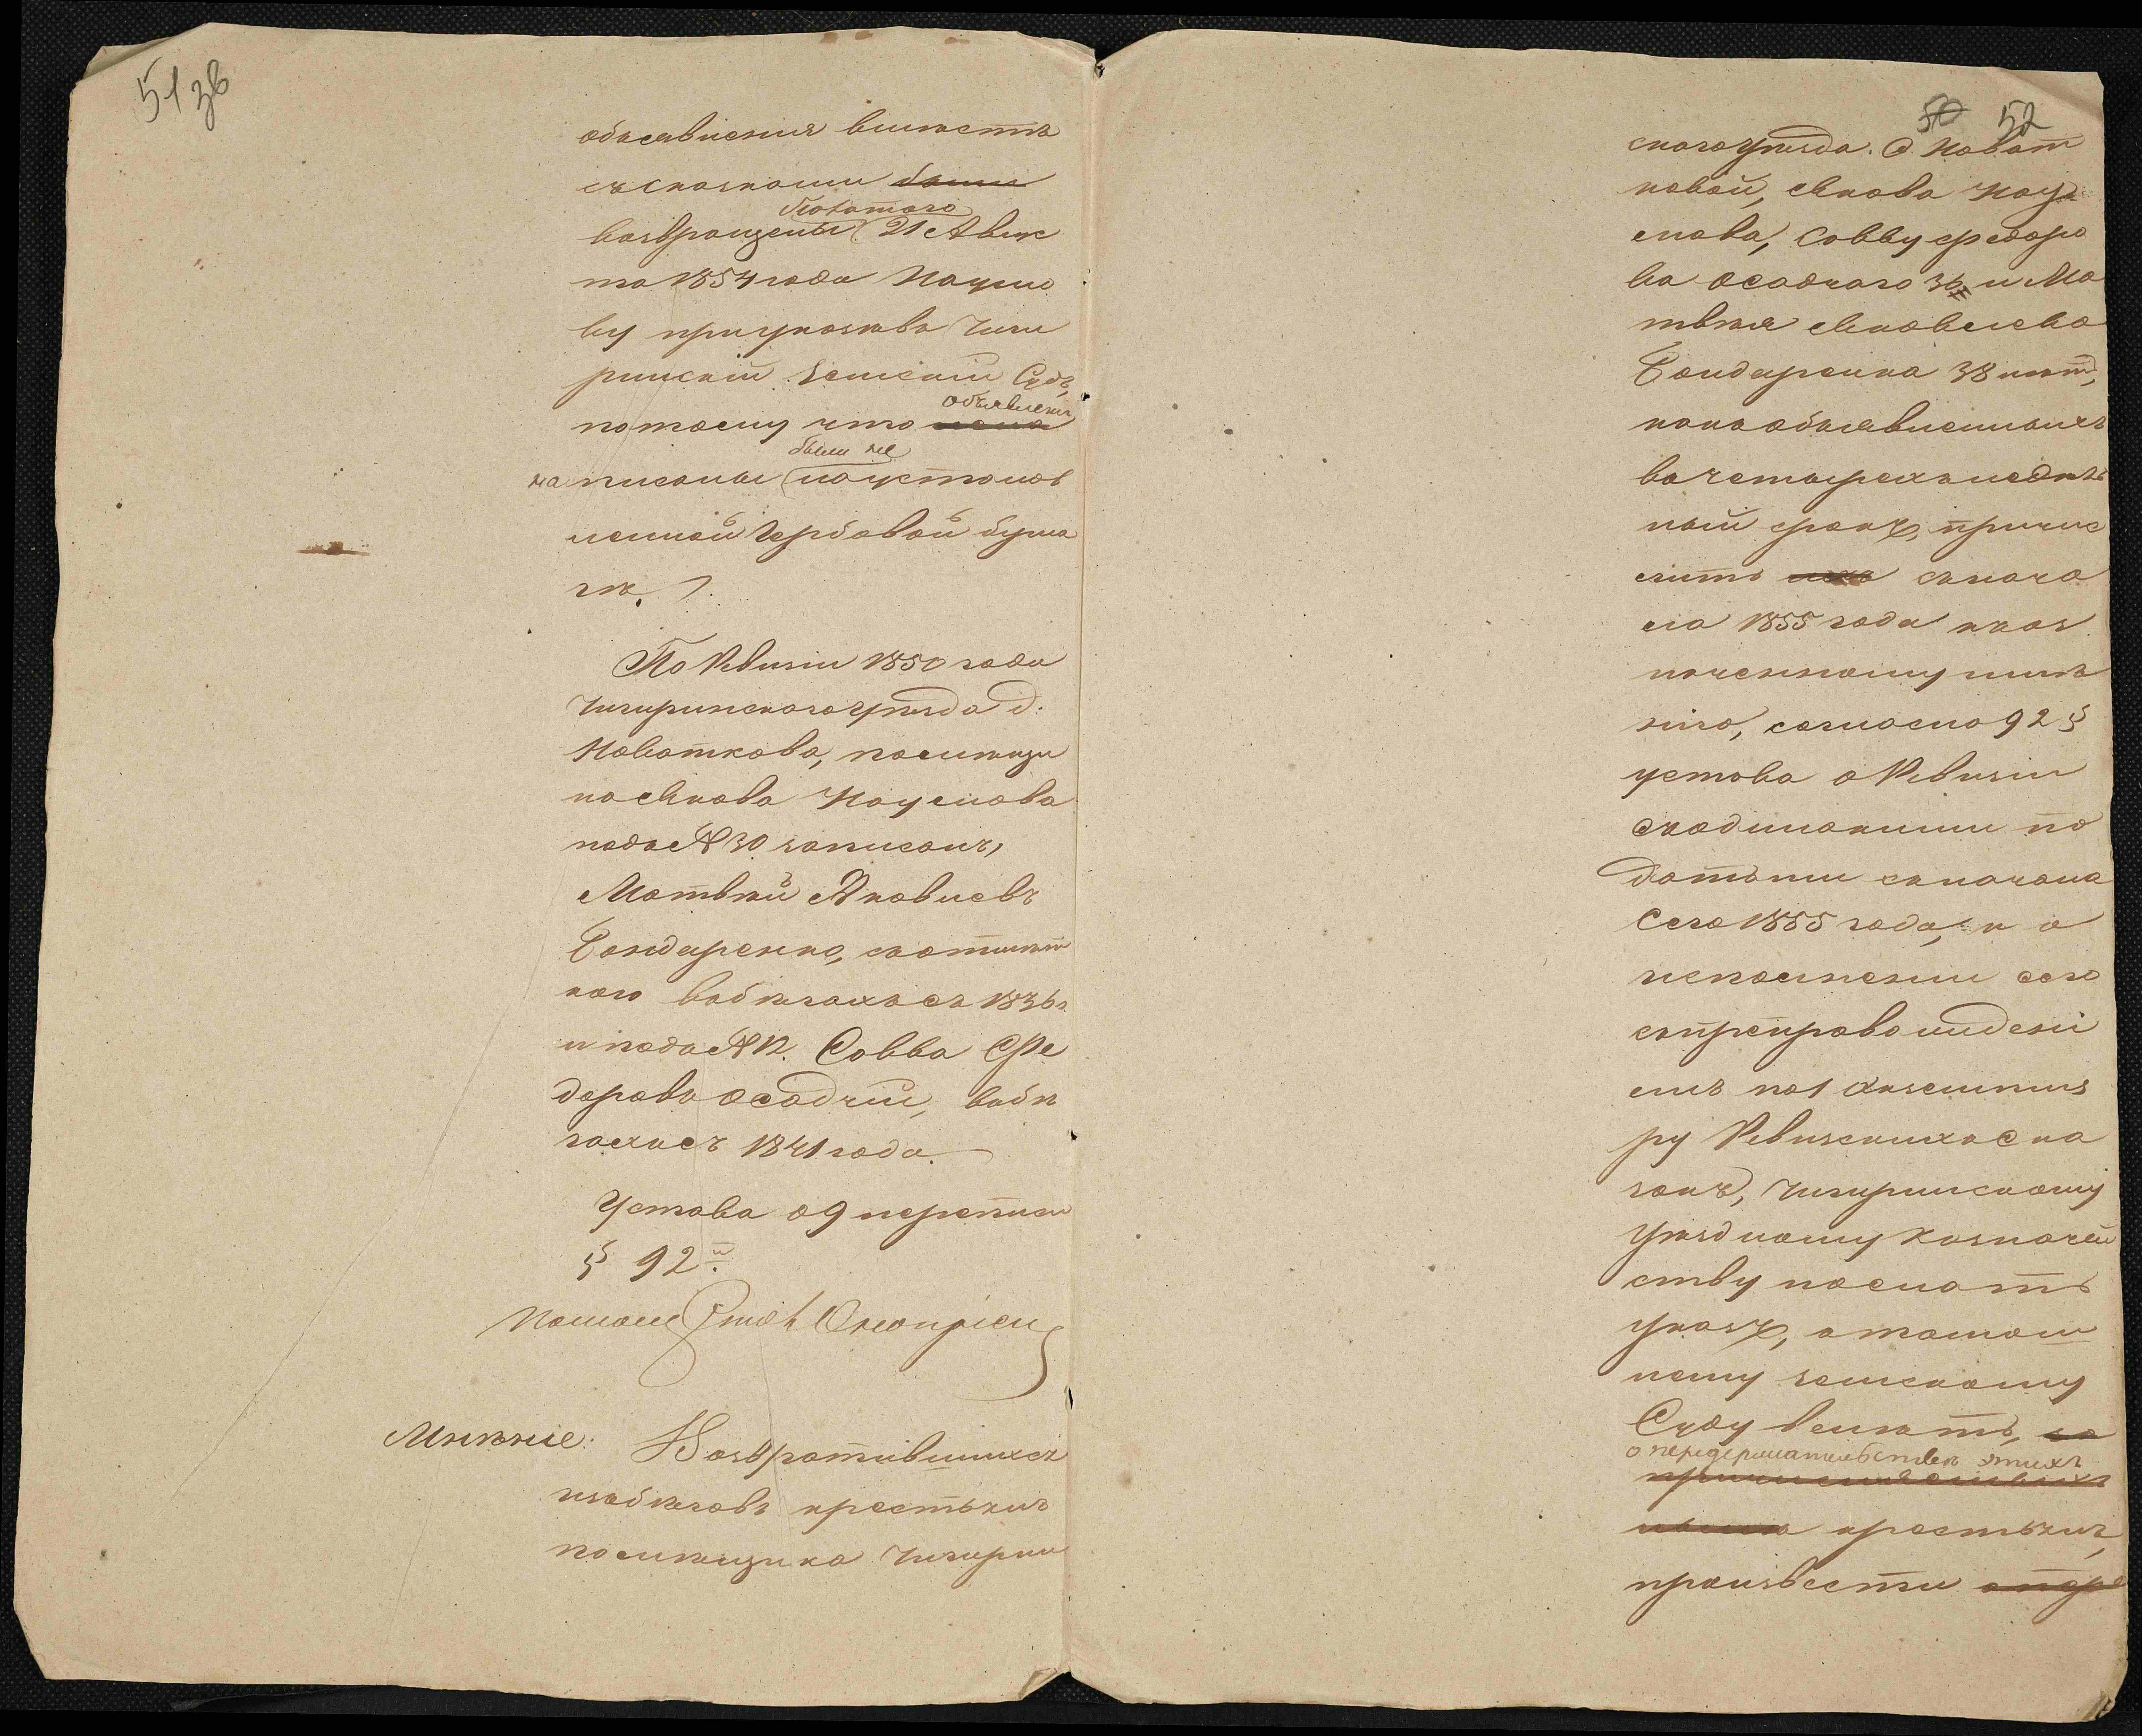 51 зв
объявления вместѣ
съ сказками были
Богатого
возвращены 21 Авгус
та 1854 года Науме
ву при указѣ въ Чиги
ринскій Земскій Судъ,
объявленія
потому что
были не
написаны на установ
ленной Гербовой бума
гѣ.
По Ревизіи 1850 года
Чигиринскаго уѣзда д:
Новаткова, помѣщи
ка Якова Наумова
подъ № 30 записанъ,
Матвѣй Яковлевъ
Бондаренко, 
въ бѣгахъ съ 1836 г.
и подъ № 12. Савва Фе
доровъ Осадчій, въ бѣ
гахъ съ 1841 года.
Устава о 9 переписи
§ 92й
Мнѣніе: Возвратившихся
изъ бѣговъ крестьянъ
помѣщика Чигирин
50 52
скаго уѣзда. д. Новат
ковой, Якова Нау
мова, Савву Федоро
ва Осадчаго 36 и Ма
твѣя Яковлева
Бондаренка 38 лѣтъ,
какъ объявленныхъ
въ четырехнедѣль
ный срокъ, причис
лить ихъ съ нача
ла 1855 года къ оз
наченному имѣ
нію, согласно 92 §
устава о Ревизіи
съ одинакими по
датьми съ начала
сего 1855 года, и о
исполненіи сего
съ препровожденіе
емъ по 1 экземпля
ру Ревизскихъ Ска
зокъ, Чигиринскому
Уѣздному Казначей
ству послать
указъ, а тамош
нему земскому
Суду велѣть, 
о передержательствѣ этихъ
крестьянъ,
произвести